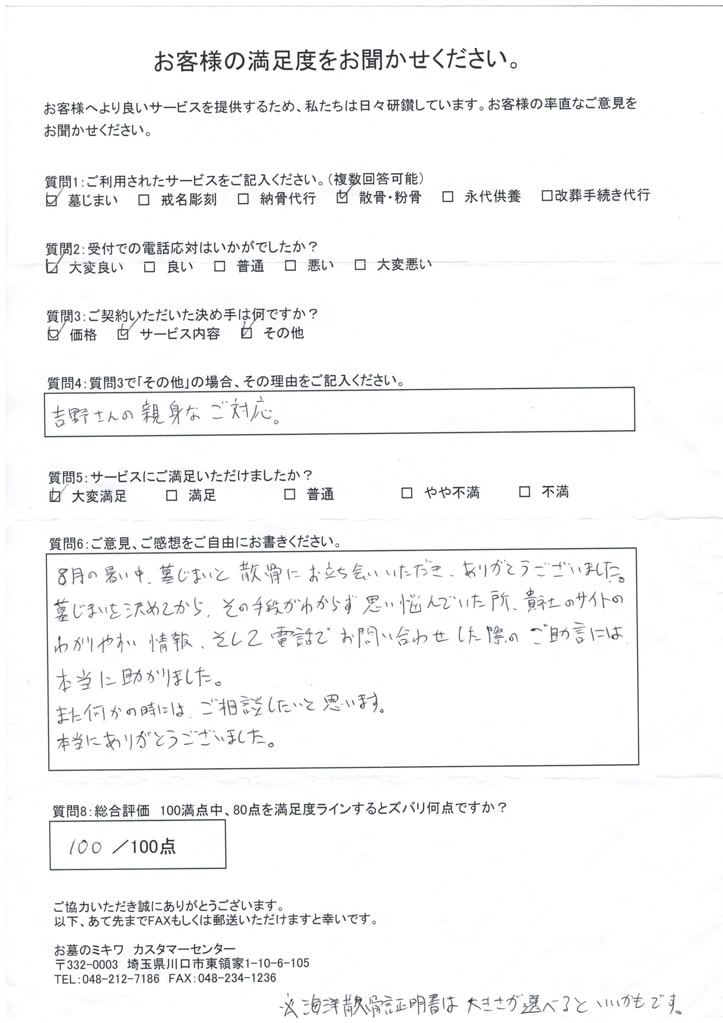 お客様の満足度をお聞かせください。
お客様へより良いサービスを提供するため、私たちは日々研鑽しています。お客様の率直なご意見を
お聞かせください。
質問1:ご利用されたサービスをご記入ください。(複数回答可能)
☑ 墓じまい □ 戒名彫刻 □ 納骨代行 ☑ 散骨・粉骨 □ 永代供養 □改葬手続き代行
質問2:受付での電話応対はいかがでしたか?
☑ 大変良い □ 良い □ 普通 □ 悪い □ 大変悪い
質問3:ご契約いただいた決め手は何ですか?
☑ 価格 ☑ サービス内容 ☑ その他
質問4:質問3で「その他」の場合、その理由をご記入ください。
吉野さんの親身なご対応。
質問5:サービスにご満足いただけましたか?
☑ 大変満足 □ 満足 □ 普通 □ やや不満 □ 不満
質問6:ご意見、ご感想をご自由にお書きください。
8月の暑い中、墓じまいと散骨にお立ち会いいただき、ありがとうございました。
墓じまいを決めてから、その手段がわからず思い悩んでいた所、貴社のサイトの
わかりやすい情報、そして電話でお問い合わせした際のご助言には、
本当に助かりました。
また何かの時には、ご相談したいと思います。
本当にありがとうございました。
質問8:総合評価 100満点中、80点を満足度ラインするとズバリ何点ですか?
100 /100点
ご協力いただき誠にありがとうございます。
以下、あて先までFAXもしくは郵送いただけますと幸いです。
お墓のミキワ カスタマーセンター
〒332-0003 埼玉県川口市東領家1-10-6-105
TEL:048-212-7186 FAX:048-234-1236
※海洋散骨証明書は大きさが選べるといいかもです。